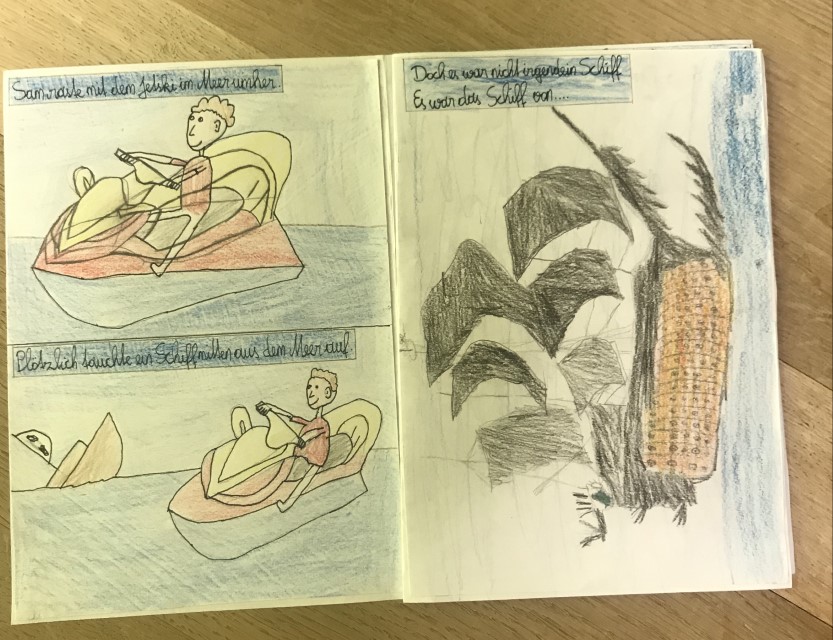 Sam raste mit dem Jetski im Meer umher.
Plötzlich tauchte ein Schiff mitten aus dem Meer auf.
Doch es war nicht irgendein Schiff
Es war das Schiff von....